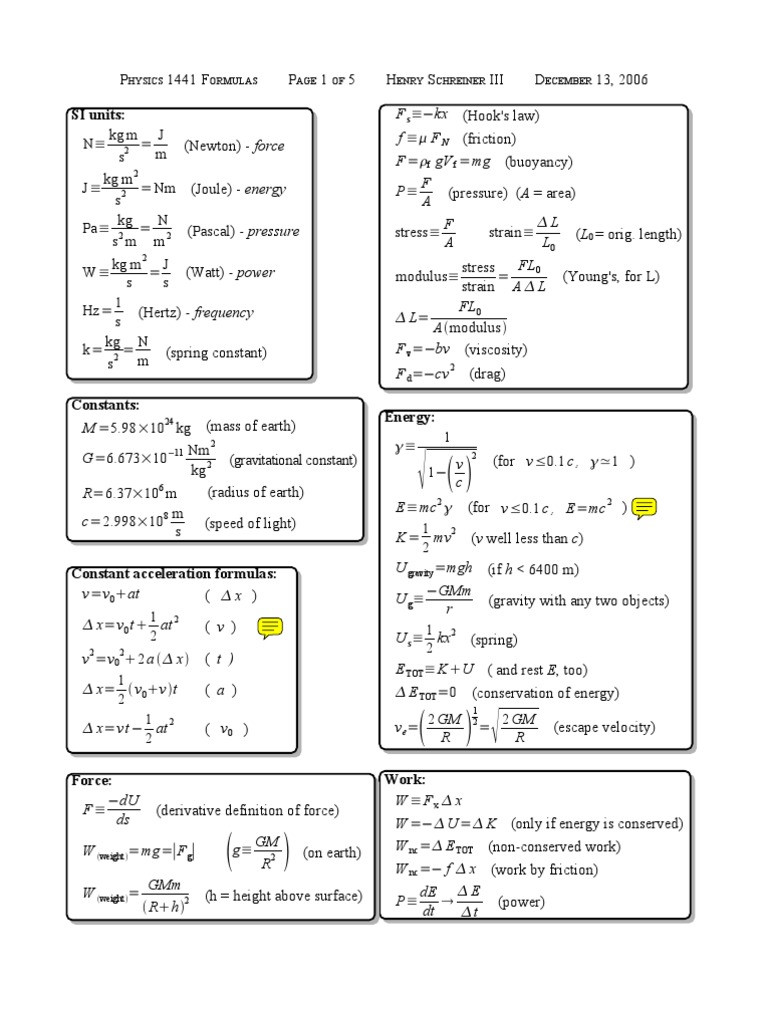 Physics 1441 Formulas Page 1 of 5 Henry Schreiner III December 13, 2006
SI units:
N≡kg m/s²=J/m (Newton) - force
J≡kg m²/s²=Nm (Joule) - energy
Pa≡kg/s²m=N/m² (Pascal) - pressure
W≡kg m²/s=J/s (Watt) - power
Hz=1/s (Hertz) - frequency
k=kg/s²=N/m (spring constant)
Constants:
M=5.98×10²⁴kg (mass of earth)
G=6.673×10⁻¹¹ Nm²/kg² (gravitational constant)
R=6.37×10⁶m (radius of earth)
c=2.998×10⁸ m/s (speed of light)
Constant acceleration formulas:
v=v₀+at ( Δx )
Δx=v₀t+1/2 at² ( v )
v²=v₀²+2a(Δx) ( t )
Δx=1/2(v₀+v)t ( a )
Δx=vt−1/2 at² ( v₀ )
Force:
F≡−dU/ds (derivative definition of force)
W(weight)=mg=|Fg| (g≡GM/R²) (on earth)
W(weight)=GMm/(R+h)² (h = height above surface)
Fs≡−kx (Hook's law)
f≡μFN (friction)
F=ρf gVf=mg (buoyancy)
P≡F/A (pressure) (A = area)
stress≡F/A strain≡ΔL/L₀ (L₀= orig. length)
modulus≡stress/strain=FL₀/AΔL (Young's, for L)
ΔL=FL₀/A(modulus)
Fv=−bv (viscosity)
Fd=−cv² (drag)
Energy:
γ≡1/√(1−(v/c)²) (for v≤0.1c, γ≃1 )
E≡mc²γ (for v≤0.1c, E=mc² )
K=1/2 mv² (v well less than c)
Ugravity=mgh (if h < 6400 m)
Ug≡−GMm/r (gravity with any two objects)
Us≡1/2 kx² (spring)
ETOT≡K+U ( and rest E, too)
ΔETOT=0 (conservation of energy)
ve=(2GM/R)^1/2=√(2GM/R) (escape velocity)
Work:
W≡FxΔx
W=−ΔU=ΔK (only if energy is conserved)
Wnc=ΔETOT (non-conserved work)
Wnc=−fΔx (work by friction)
P≡dE/dt→ΔE/Δt (power)